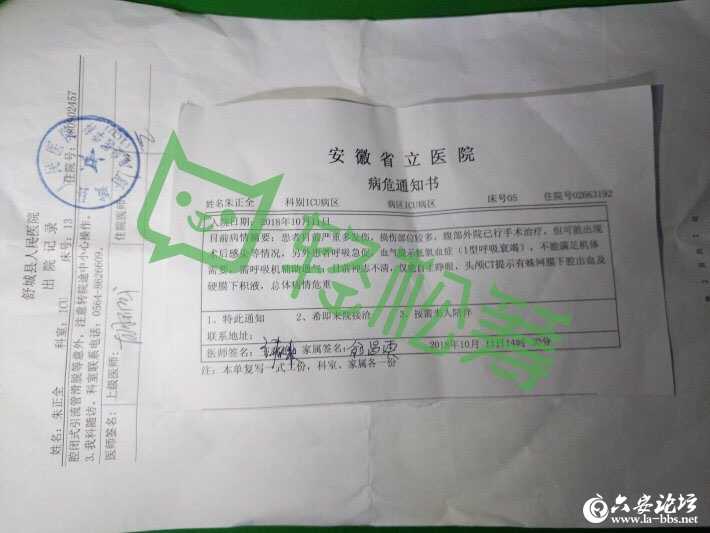 安徽省立医院
病危通知书
姓名朱正全 科别ICU病区 病区ICU病区 床号05 住院号02663192
入院日期：2018年10月11日
目前病情摘要：患者目前严重多发伤，损伤部位较多，腹部外院已行手术治疗，但可能出现
术后感染等情况，另外患者呼吸急促，血气提示低氧血症（1型呼吸衰竭），不能满足机体
需要，需呼吸机辅助通气，目前神志不清，仅能自主睁眼，头颅CT提示有蛛网膜下腔出血及
硬膜下积液，总体病情危重
1、特此通知 2、希即来院接洽 3、按需求人陪伴
联系地址：
医师签名： 家属签名： 2018年10月11日14时
注：本单复写一式二份，科室、家属各一份
舒城县人民医院
出院记录
姓名：朱正全 科室：ICU 床号：13 住院号：
腔闭式引流管滑脱等意外，注意转院途中小心操作。
3.我科随访，科室联系电话：0564-8626609。
医师签名： 上级医师： 住院医师：
轻松筹
六安论坛
www.la-bbs.net